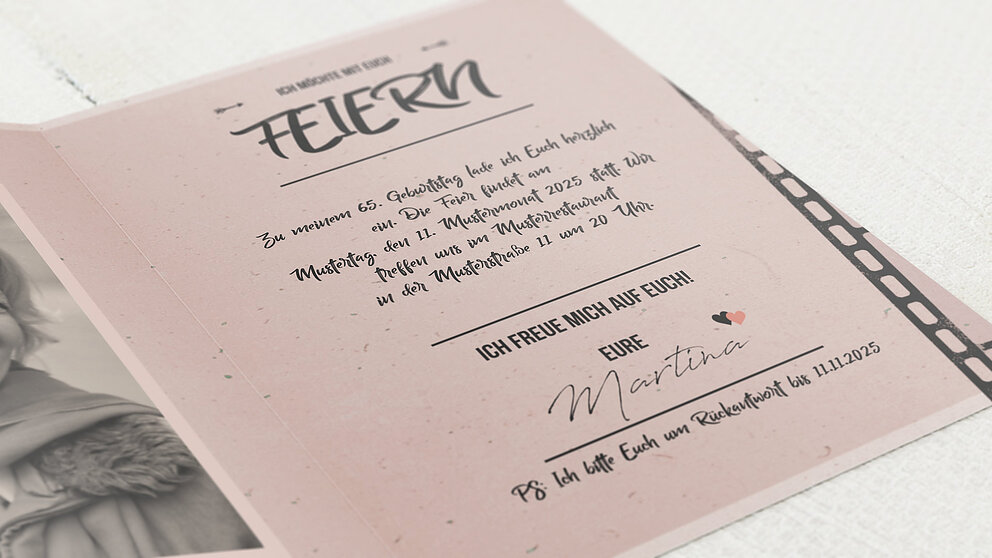 ICH MÖCHTE MIT EUCH
FEIERN
Zu meinem 65. Geburtstag lade ich Euch herzlich
ein. Die Feier findet am
Mustertag, den 11. Mustermonat 2025 statt. Wir
treffen uns im Musterrestaurant
in der Musterstraße 11 um 20 Uhr.
ICH FREUE MICH AUF EUCH!
EURE
Martina
PS: Ich bitte Euch um Rückantwort bis 11.11.2025